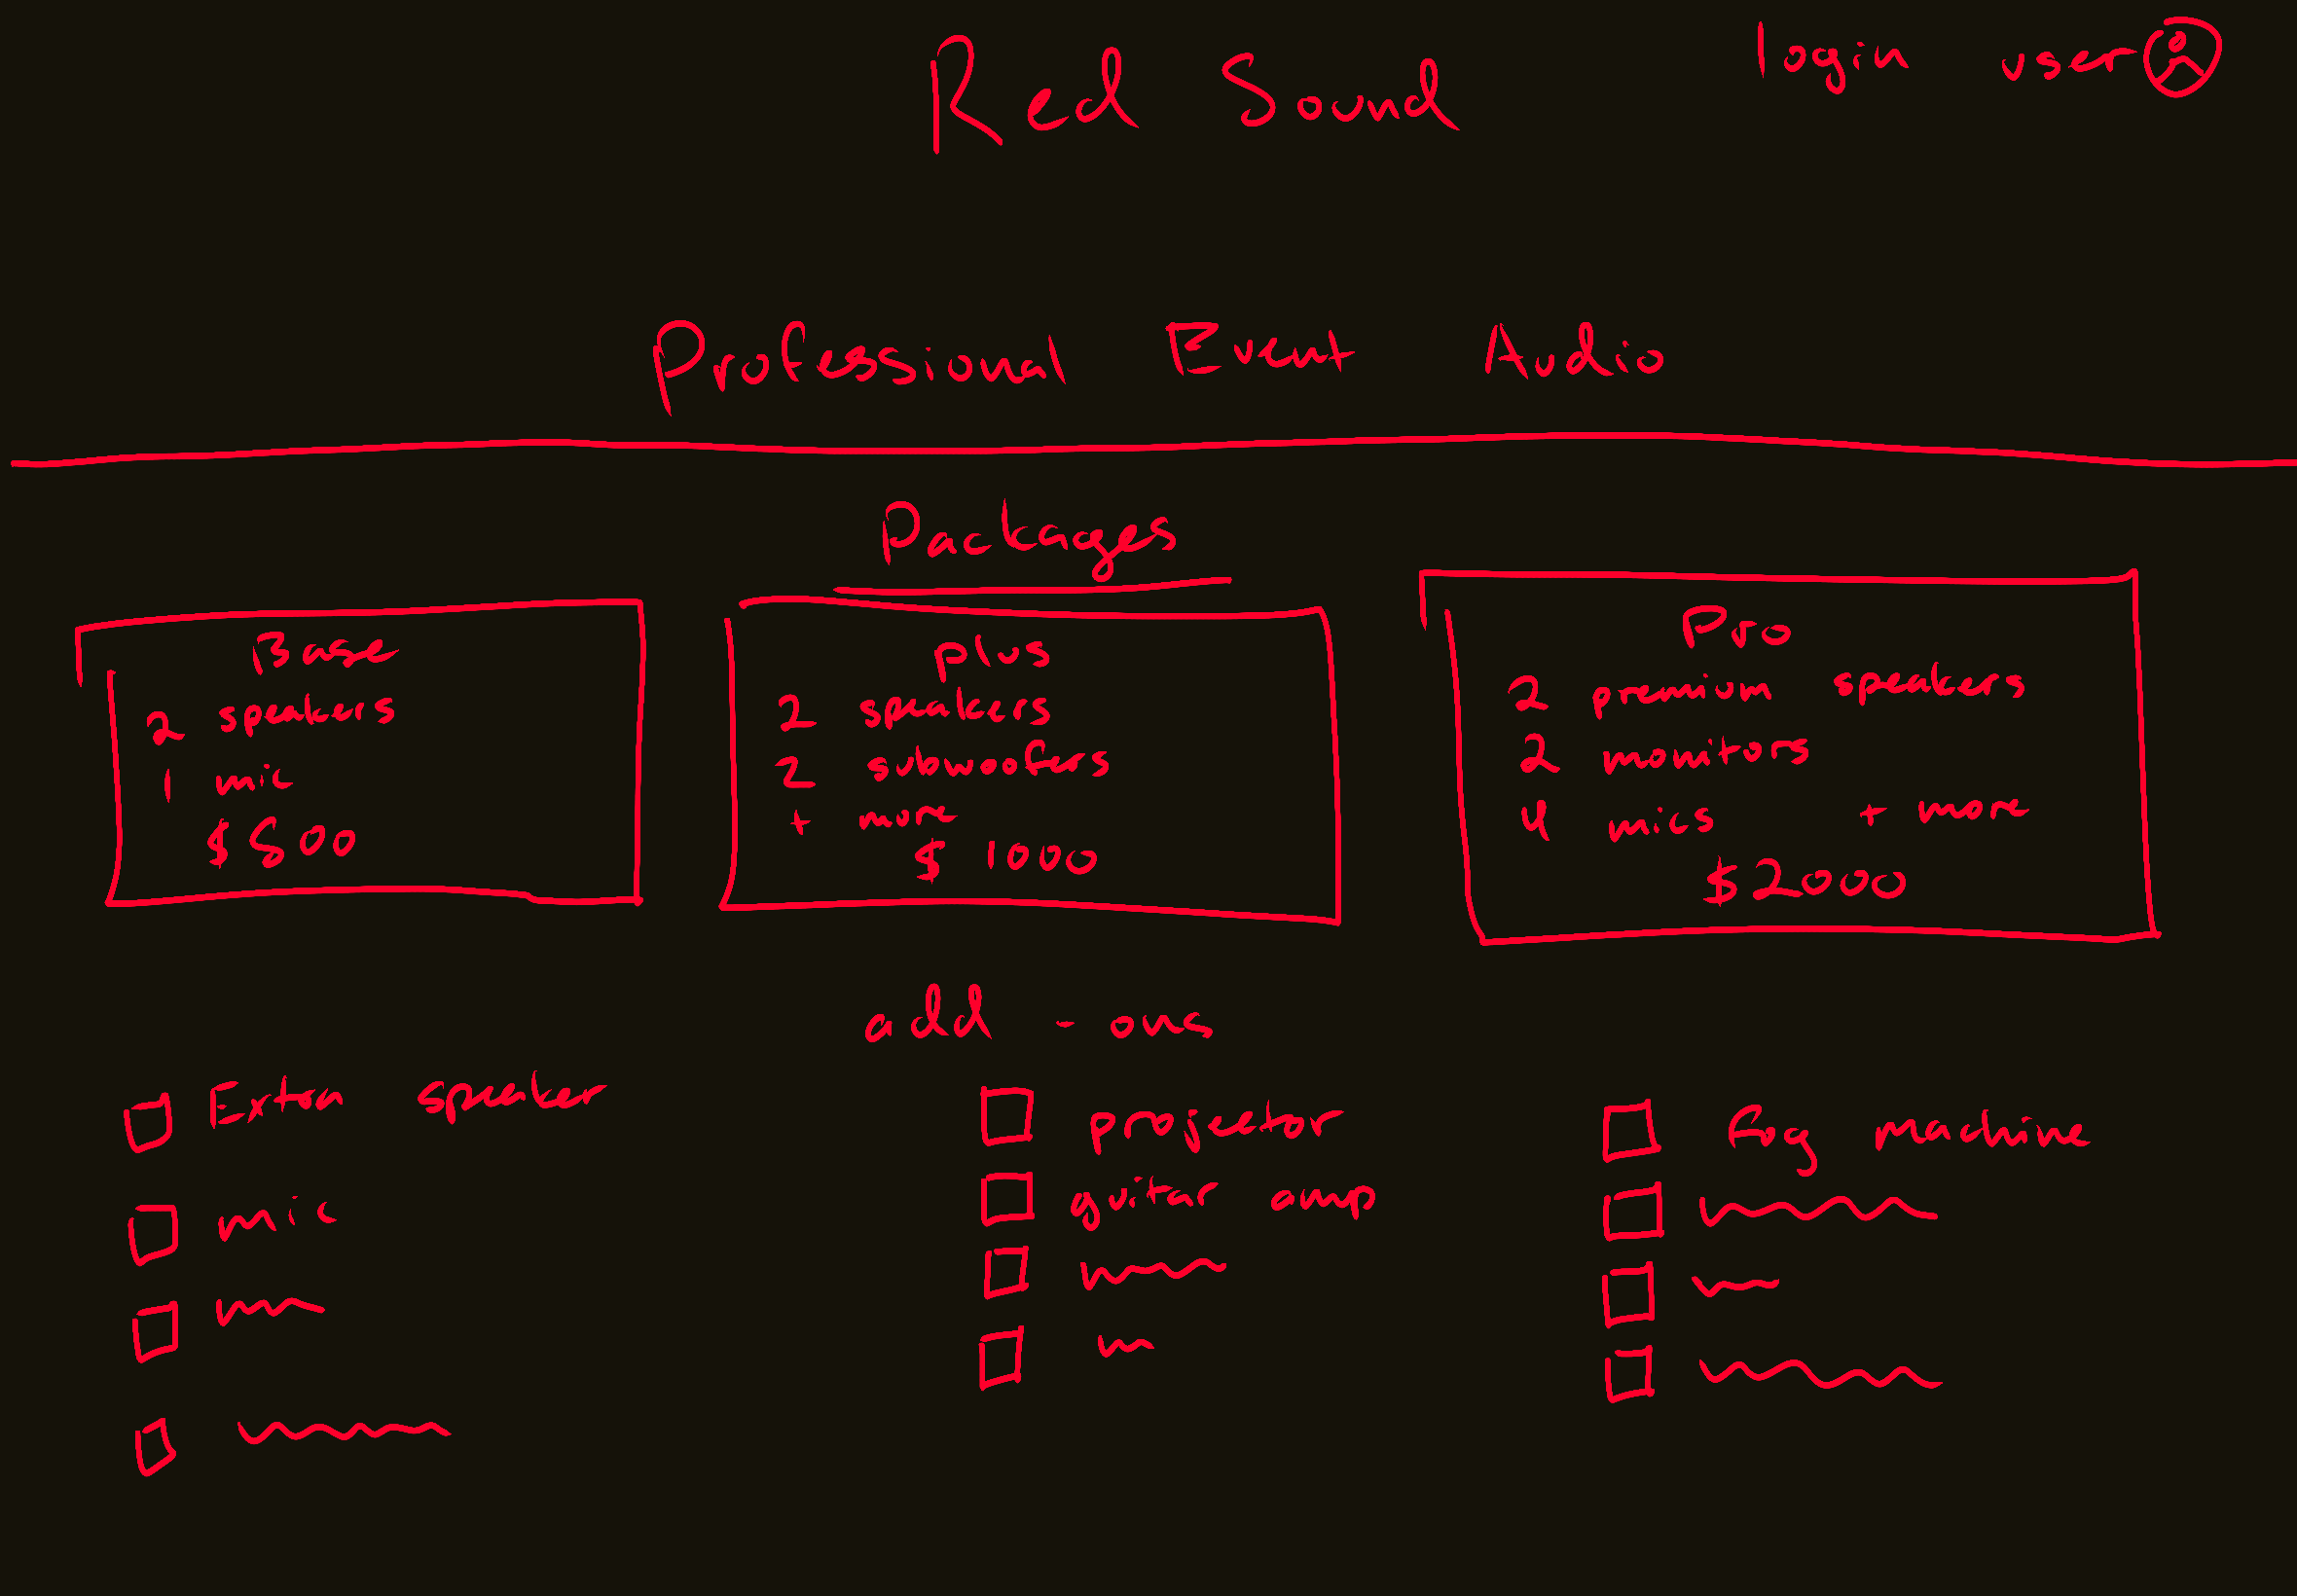 Red Sound
login user
Professional Event Audio
Packages
Base
2 speakers
1 mic
$ 800
plus
2 speakers
2 subwoofers
+ more
$ 1000
Pro
2 premium speakers
2 monitors
4 mics + more
$ 2000
add - ons
Extra speaker
mic
projector
guitar amp
fog machine